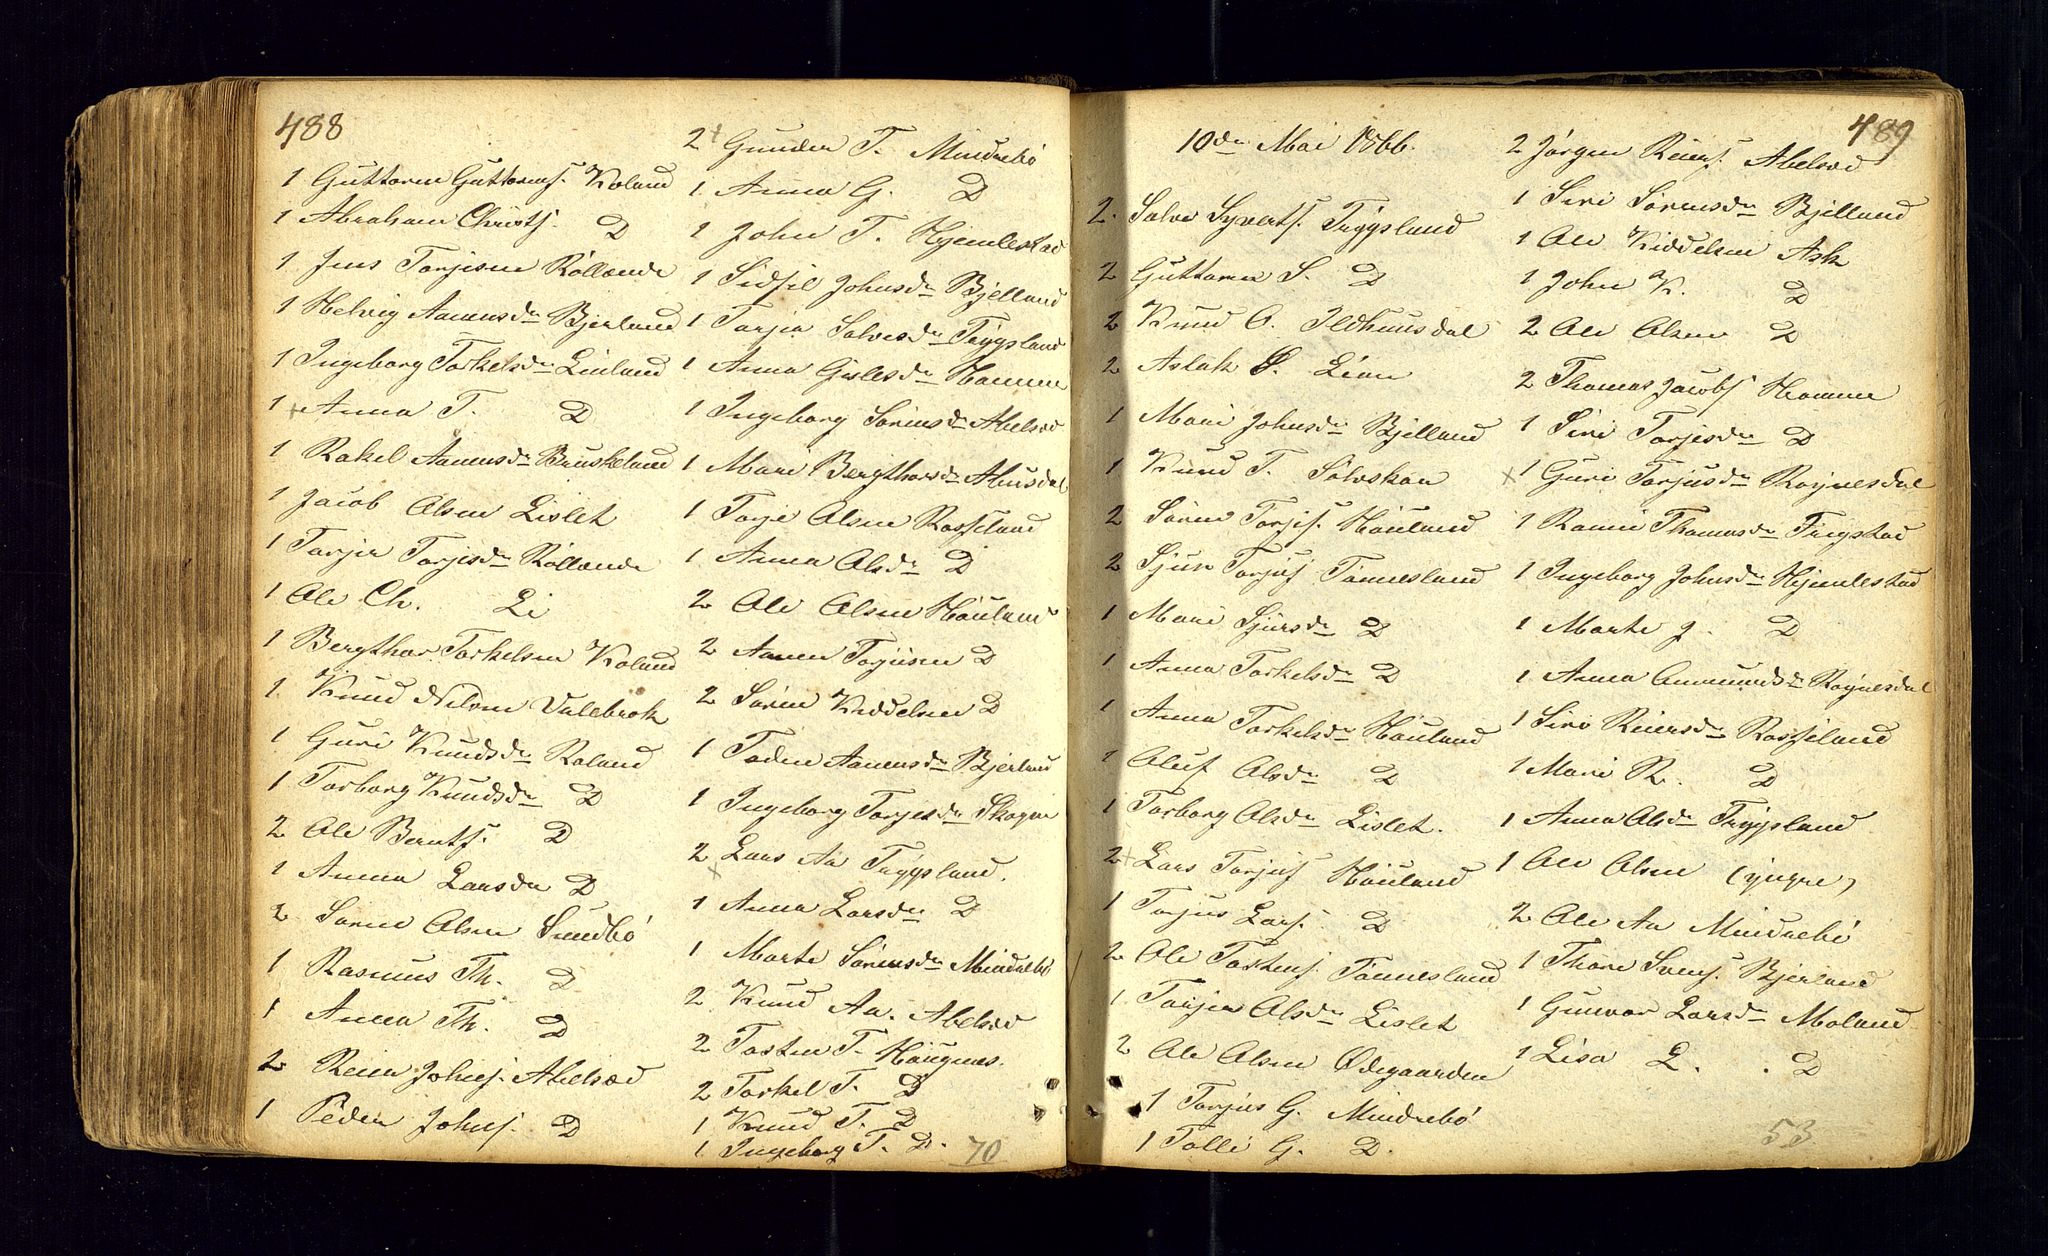 488
1 Guttorm Guttorms. Roland
1 Abraham Christs. D
1 Jens Torjesen Röllende
1 Helvig Aanensdr Bjerland
1 Ingeborg Torkelsdr Linland
1 Anna T. D
1 Rakel Aanensdr Bruskeland
1 Jacob Olsen Lislet
1 Torjer Torjesdr Röllende
1 Ole Ch. Li
1 Bergthor Torkelsen Roland
1. Knud Nilsen Valebrok
1 Guri Knudsdr Roland
1 Torborg Knudsdr D
2 Ole Bernts. D
1 Anna Larsdr D
2 Sören Olsen Sundbö
1 Rasmus Th. D
1 Anna Th. D
2 Reier Johns. Abelsæd
1 Peder Johns. D
2 Gunder T. Mindrebö
1 Anna G. D
1 John T. Hjemlestad
1 Sidsil Johnsdr Bjelland
1 Torjer Salvesdr Trygsland
1 Anna Gislesdr Homme
1 Ingeborg Sörensdr Abelsæd
1 Mari Bergthorsdr Ahusdal
1 Torje Olsen Rosseland
1 Anna Olsdr D
2 Ole Olsen Höuland
2 Aanen Torjusen D
2 Sören Keddelsen D
1 Taden Aanensdr Bjerland
1 Ingeborg Torjesdr Skogen
2 Lars Aa Trygsland.
1 Anna Larsdr D
1 Marte Sörensdr Mindrebö
2 Knud Aa. Abelsæd
2 Tosten T. Höugenes.
2 Torkel T. D
1 Knud T. D
1 Ingeborg T. D.
70
489
10de Mai 1866.
2. Salve Syverts. Trygsland
2 Guttorm S. D
2 Knud O. Ildhuusdal
2 Aslak O. Lian
1 Mari Johnsdr Bjelland
1 Knud T. Solvskar
2 Sören Torjes. Höuland
2 Sjur Torjus. Tönnesland
1 Mari Sjursdr D
1 Anna Torkelsdr D
1 Anna Torkelsdr Höuland
1 Oluf Olsdr D
1 Torborg Olsdr Lislet.
2 Lars Torjus. Höuland
1 Torjus Lars. D
2 Ole Tostens. Tönnesland
1 Torjer Olsdr Lislet
2 Ole Olsen Ødegaarden
1 Torjus G. Mindrebö
1 Tolle G. D.
2 Jörgen Reiers. Abelsæd
1 Siri Sörensdr Bjelland
1 Ole Kiddelsen Ask
1 John K. D
2 Ole Olsen D
2 Thomas Jacobs. Homme
1 Siri Torjesdr D
1 Guri Torjusdr Röynesdal
1 Ronni Thomasdr Frigstad
1 Ingeborg Johnsdr Hjemlestad
1 Marte J. D
1 Anna Omundsdr Röynesdal
1 Siri Reiersdr Rosseland
1 Mari R. D
1 Anna Olsdr Trygsland
1 Ole Olsen (yngre)
2 Ole Aa Mindrebö
1 Thore Svens. Bjerland
1 Gunvor Larsdr Moland
1 Lisa L. . D
53